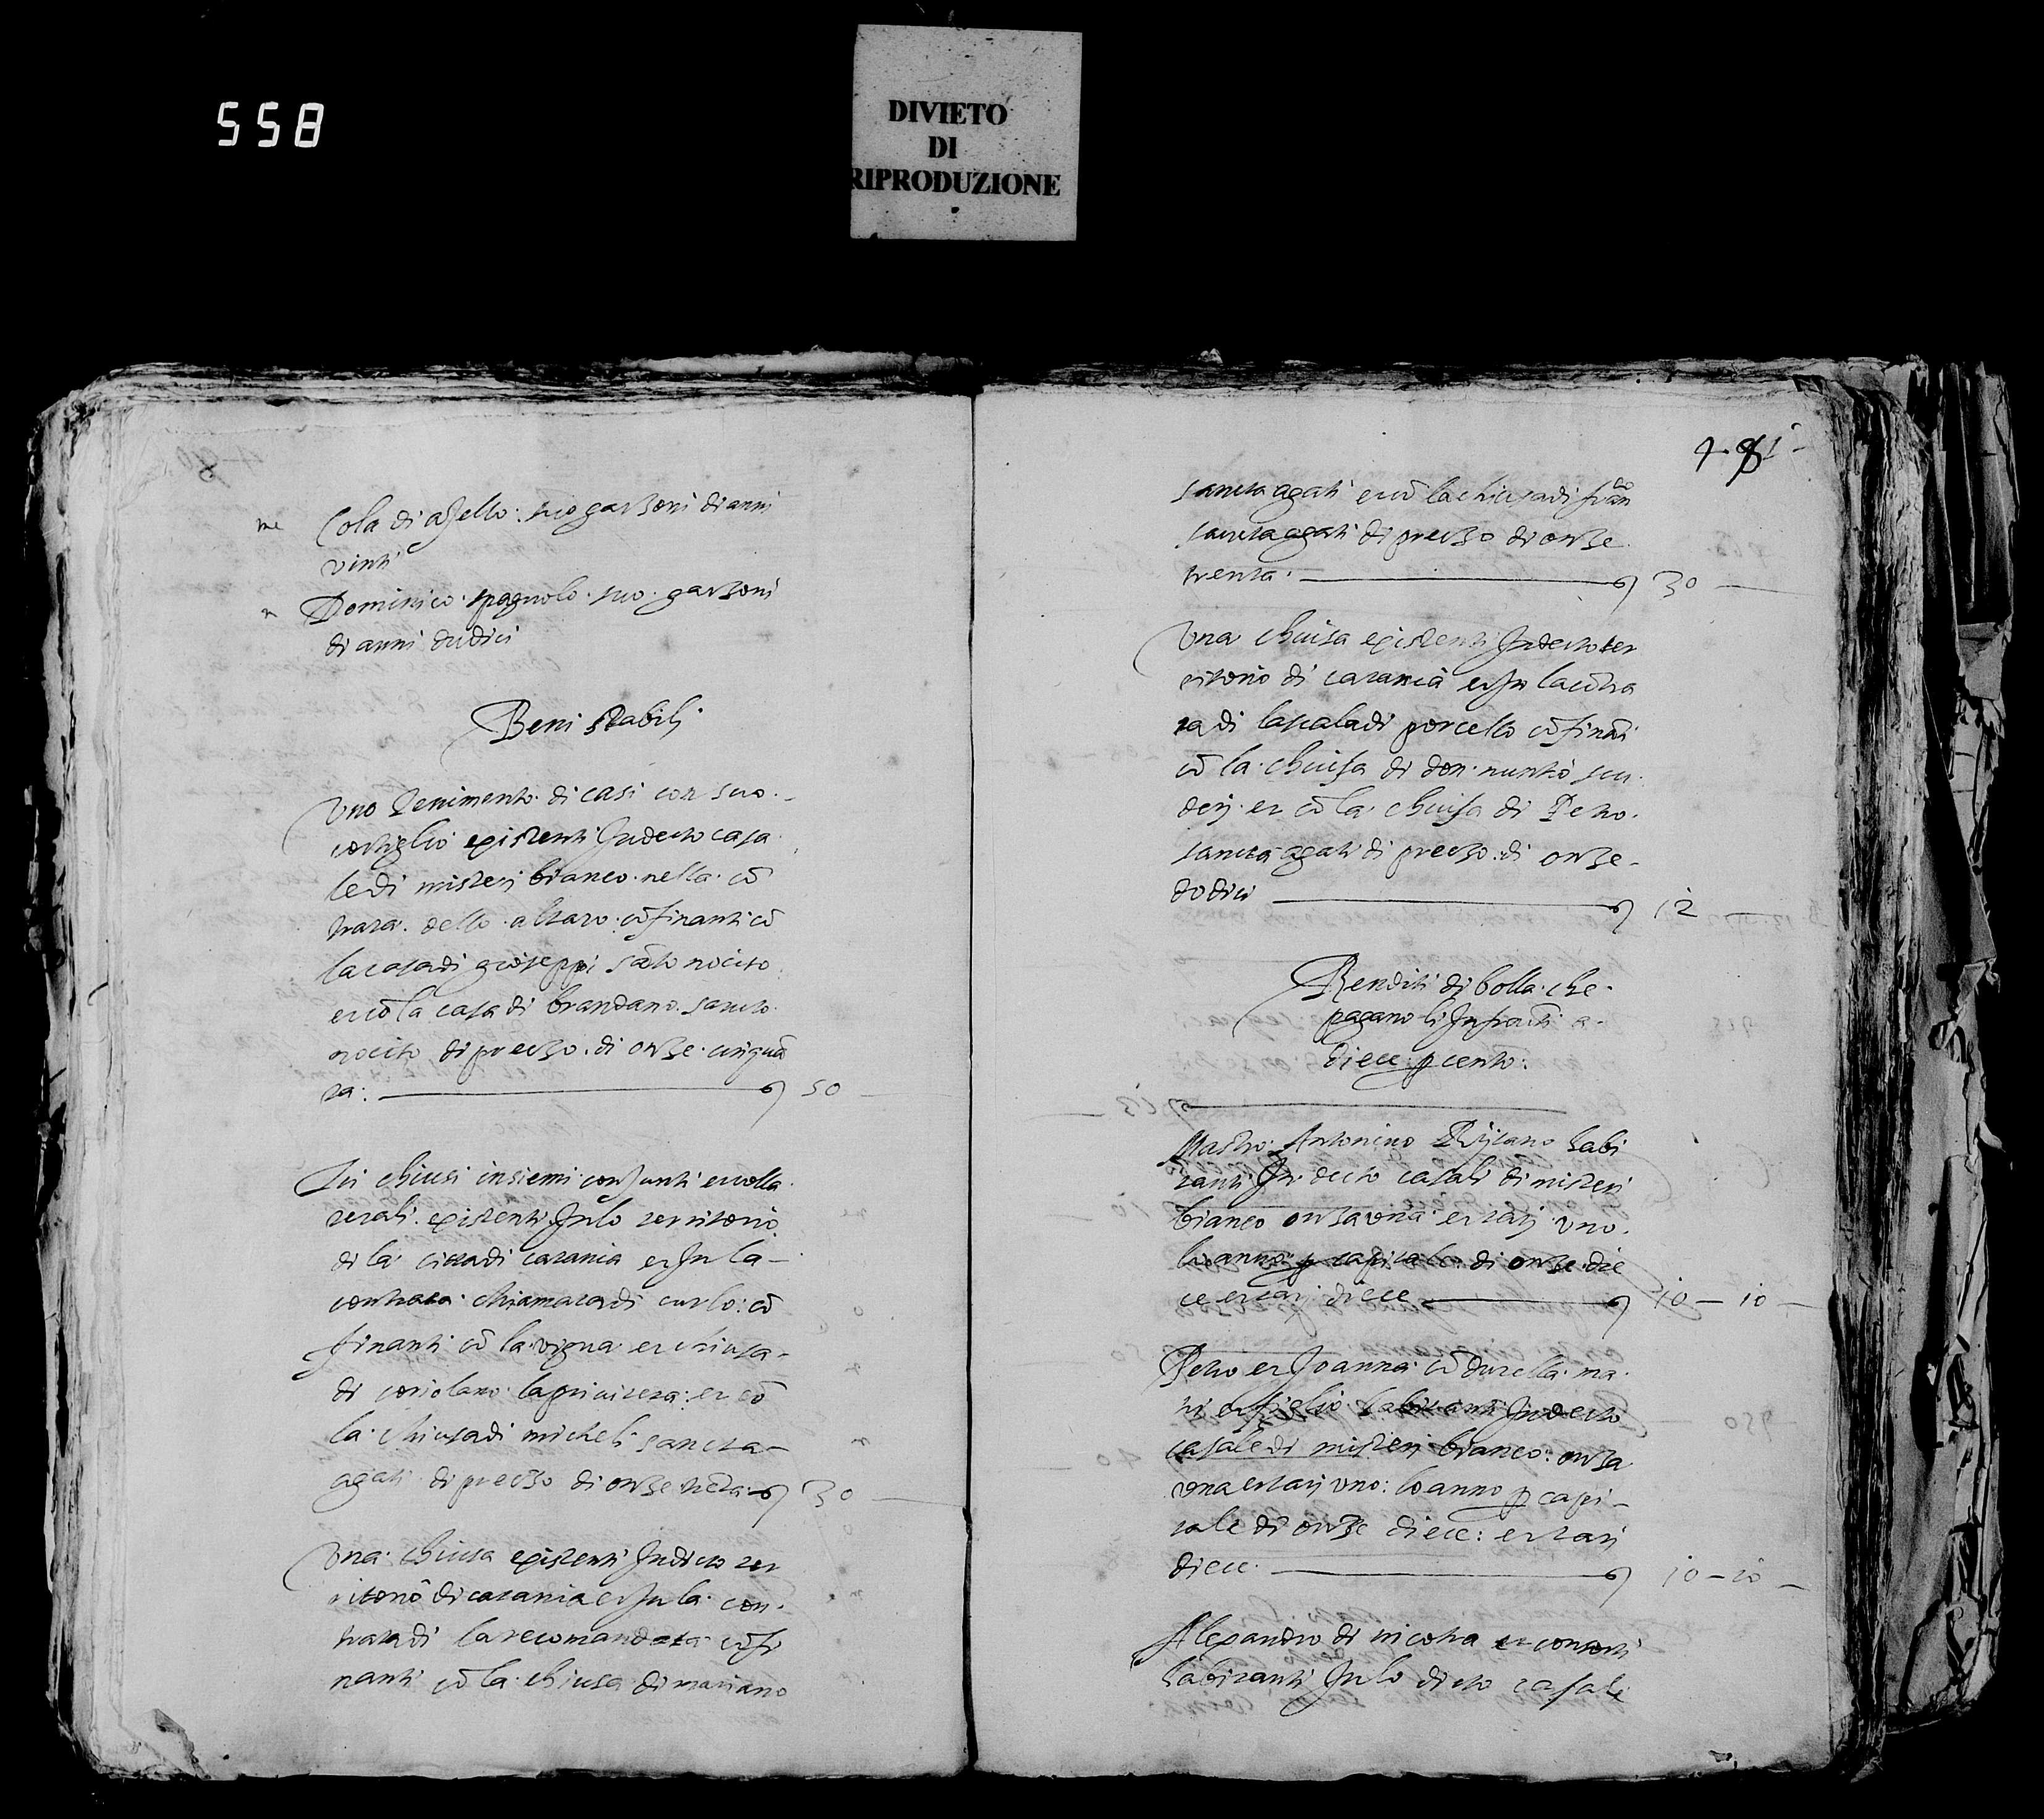 558
DIVIETO
DI
RIPRODUZIONE
Cola di asello: suo garzoni di anni
vinti
Dominico spagnolo suo garzoni
di anni dudici
Beni stabili
Uno tenimento di casi con suo
cortiglio existenti In decto casa
le di misteri bianco nella cō
trata dello altaro cōfinanti cō
la casa di gioseppi sāto nocito
et cō la casa di brandano sancto
nocito di prezzo di onze cinquā
ta: 50
chiusi insiemi conjunti et colla
terali existenti In lo territorio
di la cita di catania et In la
contrata chiamata di curlo: cō
finanti cō la vigna et chiusa
di coriolano la privitera: et cō
la chiusa di micheli sancta
agati di prezzo di onze trēta 30
Una chiusa existenti In dicto ter
ritorio di catania et In la con
trata di la recomandata cōfi
nanti cō la chiusa di mariano
sancta agati et cō la chiusa di
sancta agati di prezzo di onze
trenta 30
Una chiusa existenti In decto ter
ritorio di catania et In la cōtra
ta di la scala di porcello cōfināti
cō la chiusa di don nuntio scu
deri et cō la chiusa di Petro
sancta agati di prezzo di onze
dodici 12
Renditi di bolla che
pagano li Infracti a
diece p cento:
Mastro Antonino habi
tanti In decto casali di misteri
bianco onza una et tarì uno
lo anno p capitale di onze die
ce et tarì diece 10 – 10
Petro et Joanna cō
et figlio habitanti In decto
casale di misteri bianco: onza
una et tarì uno: lo anno p capi
tale di onze diece: et tarì
diece 10 – 10
Alexandro di nicotra et consorti
habitanti In lo dicto casali